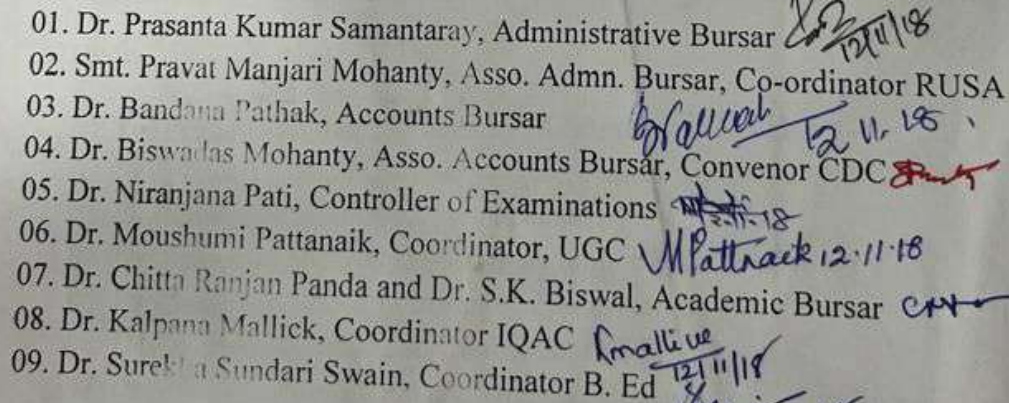 01. Dr. Prasanta Kumar Samantaray, Administrative Bursar 12/11/18
02. Smt. Pravat Manjari Mohanty, Asso. Admn. Bursar, Co-ordinator RUSA
03. Dr. Bandana Pathak, Accounts Bursar 12.11.18
04. Dr. Biswadas Mohanty, Asso. Accounts Bursar, Convenor CDC
05. Dr. Niranjana Pati, Controller of Examinations
06. Dr. Moushumi Pattanaik, Coordinator, UGC MPattnaik 12.11.18
07. Dr. Chitta Ranjan Panda and Dr. S.K. Biswal, Academic Bursar
08. Dr. Kalpana Mallick, Coordinator IQAC
09. Dr. Surekha Sundari Swain, Coordinator B. Ed 12/11/18